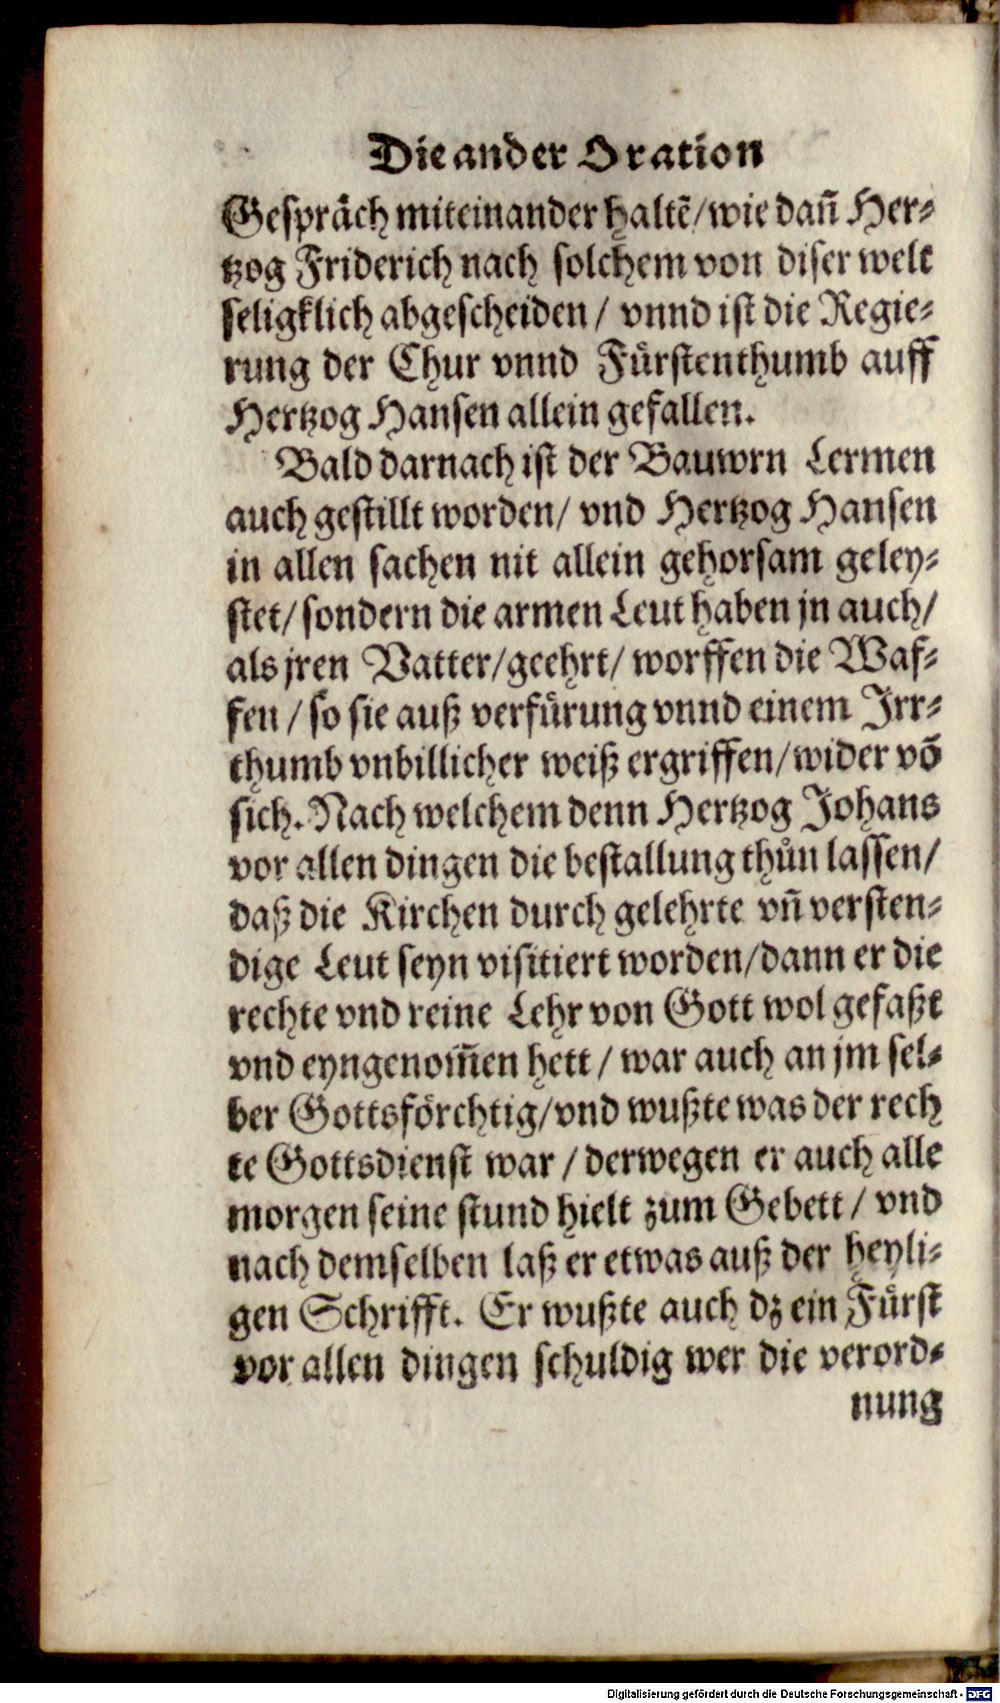 Die ander Oration
Gespräch miteinander haltē/ wie dañ Her⸗
tzog Friderich nach solchem von diser welt
seligklich abgescheiden / vnnd ist die Regie⸗
rung der Chur vnnd Fürstenthumb auff
Hertzog Hansen allein gefallen.
Bald darnach ist der Bauwrn Lermen
auch gestillt worden/ vnd Hertzog Hansen
in allen sachen nit allein gehorsam geley⸗
stet/ sondern die armen Leut haben jn auch/
als jren Vatter/ geehrt/ worffen die Waf⸗
fen / so sie auß verfürung vnnd einem Irr⸗
thumb vnbillicher weiß ergriffen/ wider võ
sich. Nach welchem denn Hertzog Johans
vor allen dingen die bestallung thůn lassen/
daß die Kirchen durch gelehrte vñ versten⸗
dige Leut seyn visitiert worden/ dann er die
rechte vnd reine Lehr von Gott wol gefaßt
vnd eyngenom̃en hett / war auch an jm sel⸗
ber Gottsförchtig/ vnd wußte was der rech
te Gottsdienst war / derwegen er auch alle
morgen seine stund hielt zum Gebett / vnd
nach demselben laß er etwas auß der heyli⸗
gen Schrifft. Er wußte auch dz ein Fürst
vor allen dingen schuldig wer die verord⸗
nung
Digitalisierung gefördert durch die Deutsche Forschungsgemeinschaft - DFG